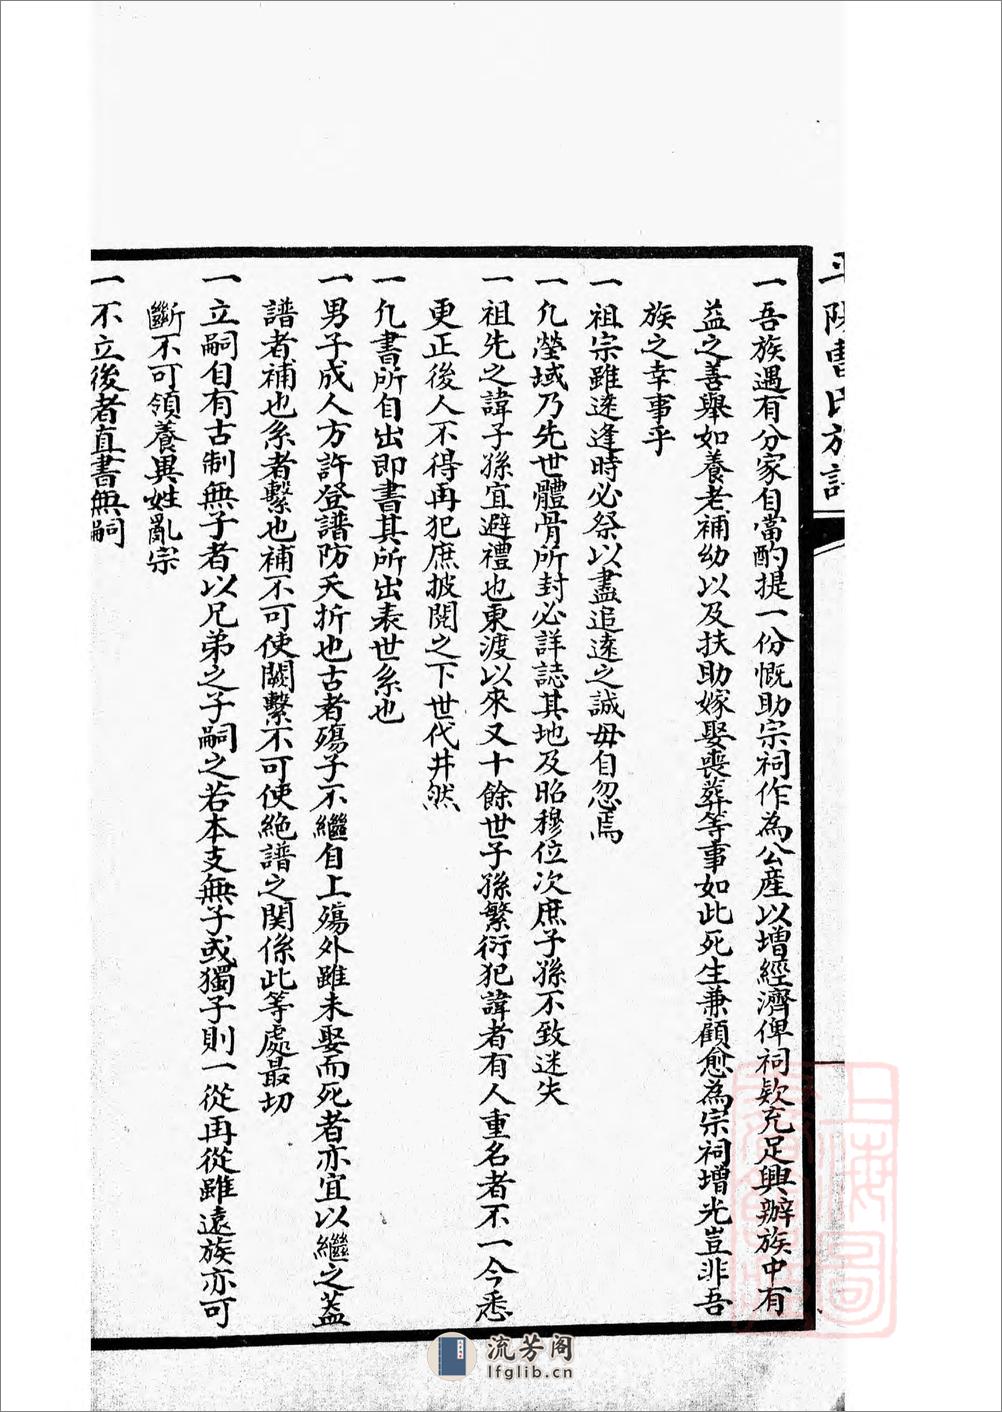 平陽曹氏族譜
一吾族遇有分家自當酌提一份慨助宗祠作為公產以增經濟俾祠欵充足興辦族中有
益之善舉如養老補幼以及扶助嫁娶喪葬等事如此死生兼顧愈為宗祠增光豈非吾
族之幸事乎
一祖宗雖遠逢時必祭以盡追遠之誠毋自忽焉
一凢塋域乃先世體骨所封必詳誌其地及昭穆位次庶子孫不致迷失
一祖先之諱子孫宜避禮也東渡以來又十餘世子孫繁衍犯諱者有人重名者不一今悉
更正後人不得再犯庶披閱之下世代井然
一凢書所自出即書其所出表世系也
一男子成人方許登譜防夭折也古者殤子不繼自上殤外雖未娶而死者亦宜以繼之蓋
譜者補也系者繫也補不可使闕繫不可使絕譜之関係此等處最切
一立嗣自有古制無子者以兄弟之子嗣之若本支無子或獨子則一從再從雖遠族亦可
斷不可領養異姓亂宗
一不立後者直書無嗣
流芳阁
lfglib.cn